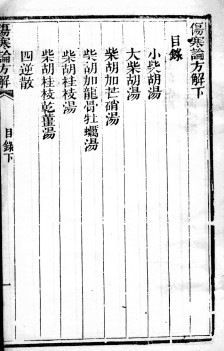 傷寒論方解下
目錄
小柴胡湯
大柴胡湯
柴胡加芒硝湯
柴胡加龍骨牡蠣湯
柴胡桂枝湯
柴胡桂枝乾薑湯
四逆散
傷寒論方解
目錄下
一